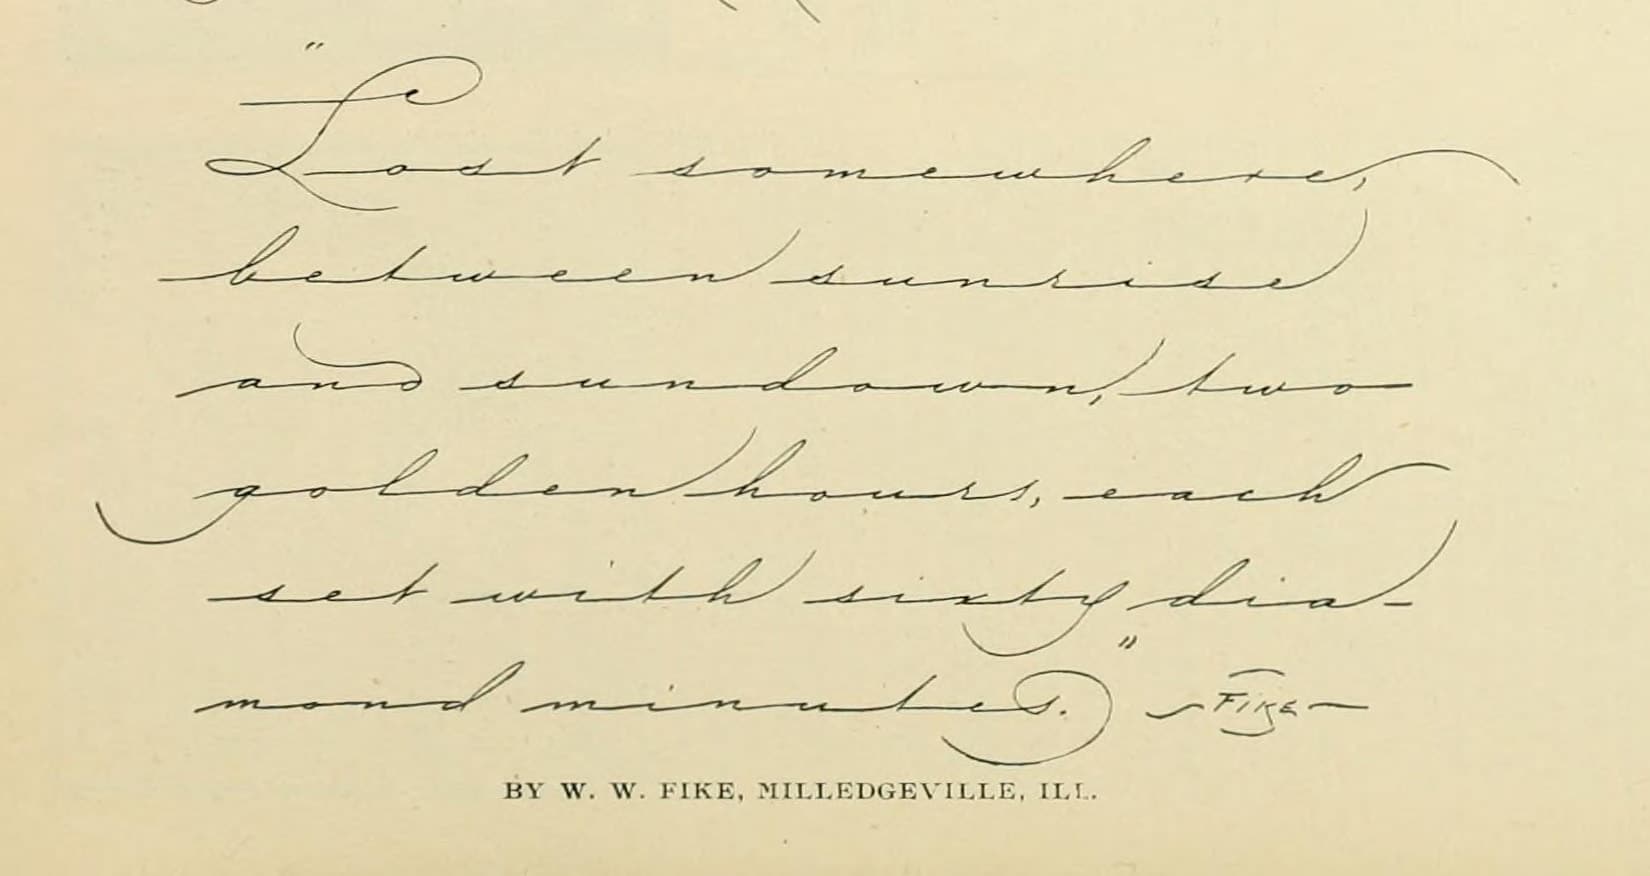 "Lost somewhere,
between sunrise
and sundown, two
golden hours, each
set with sixty dia-
mond minutes." ~Fike~
BY W. W. FIKE, MILLEDGEVILLE, ILL.